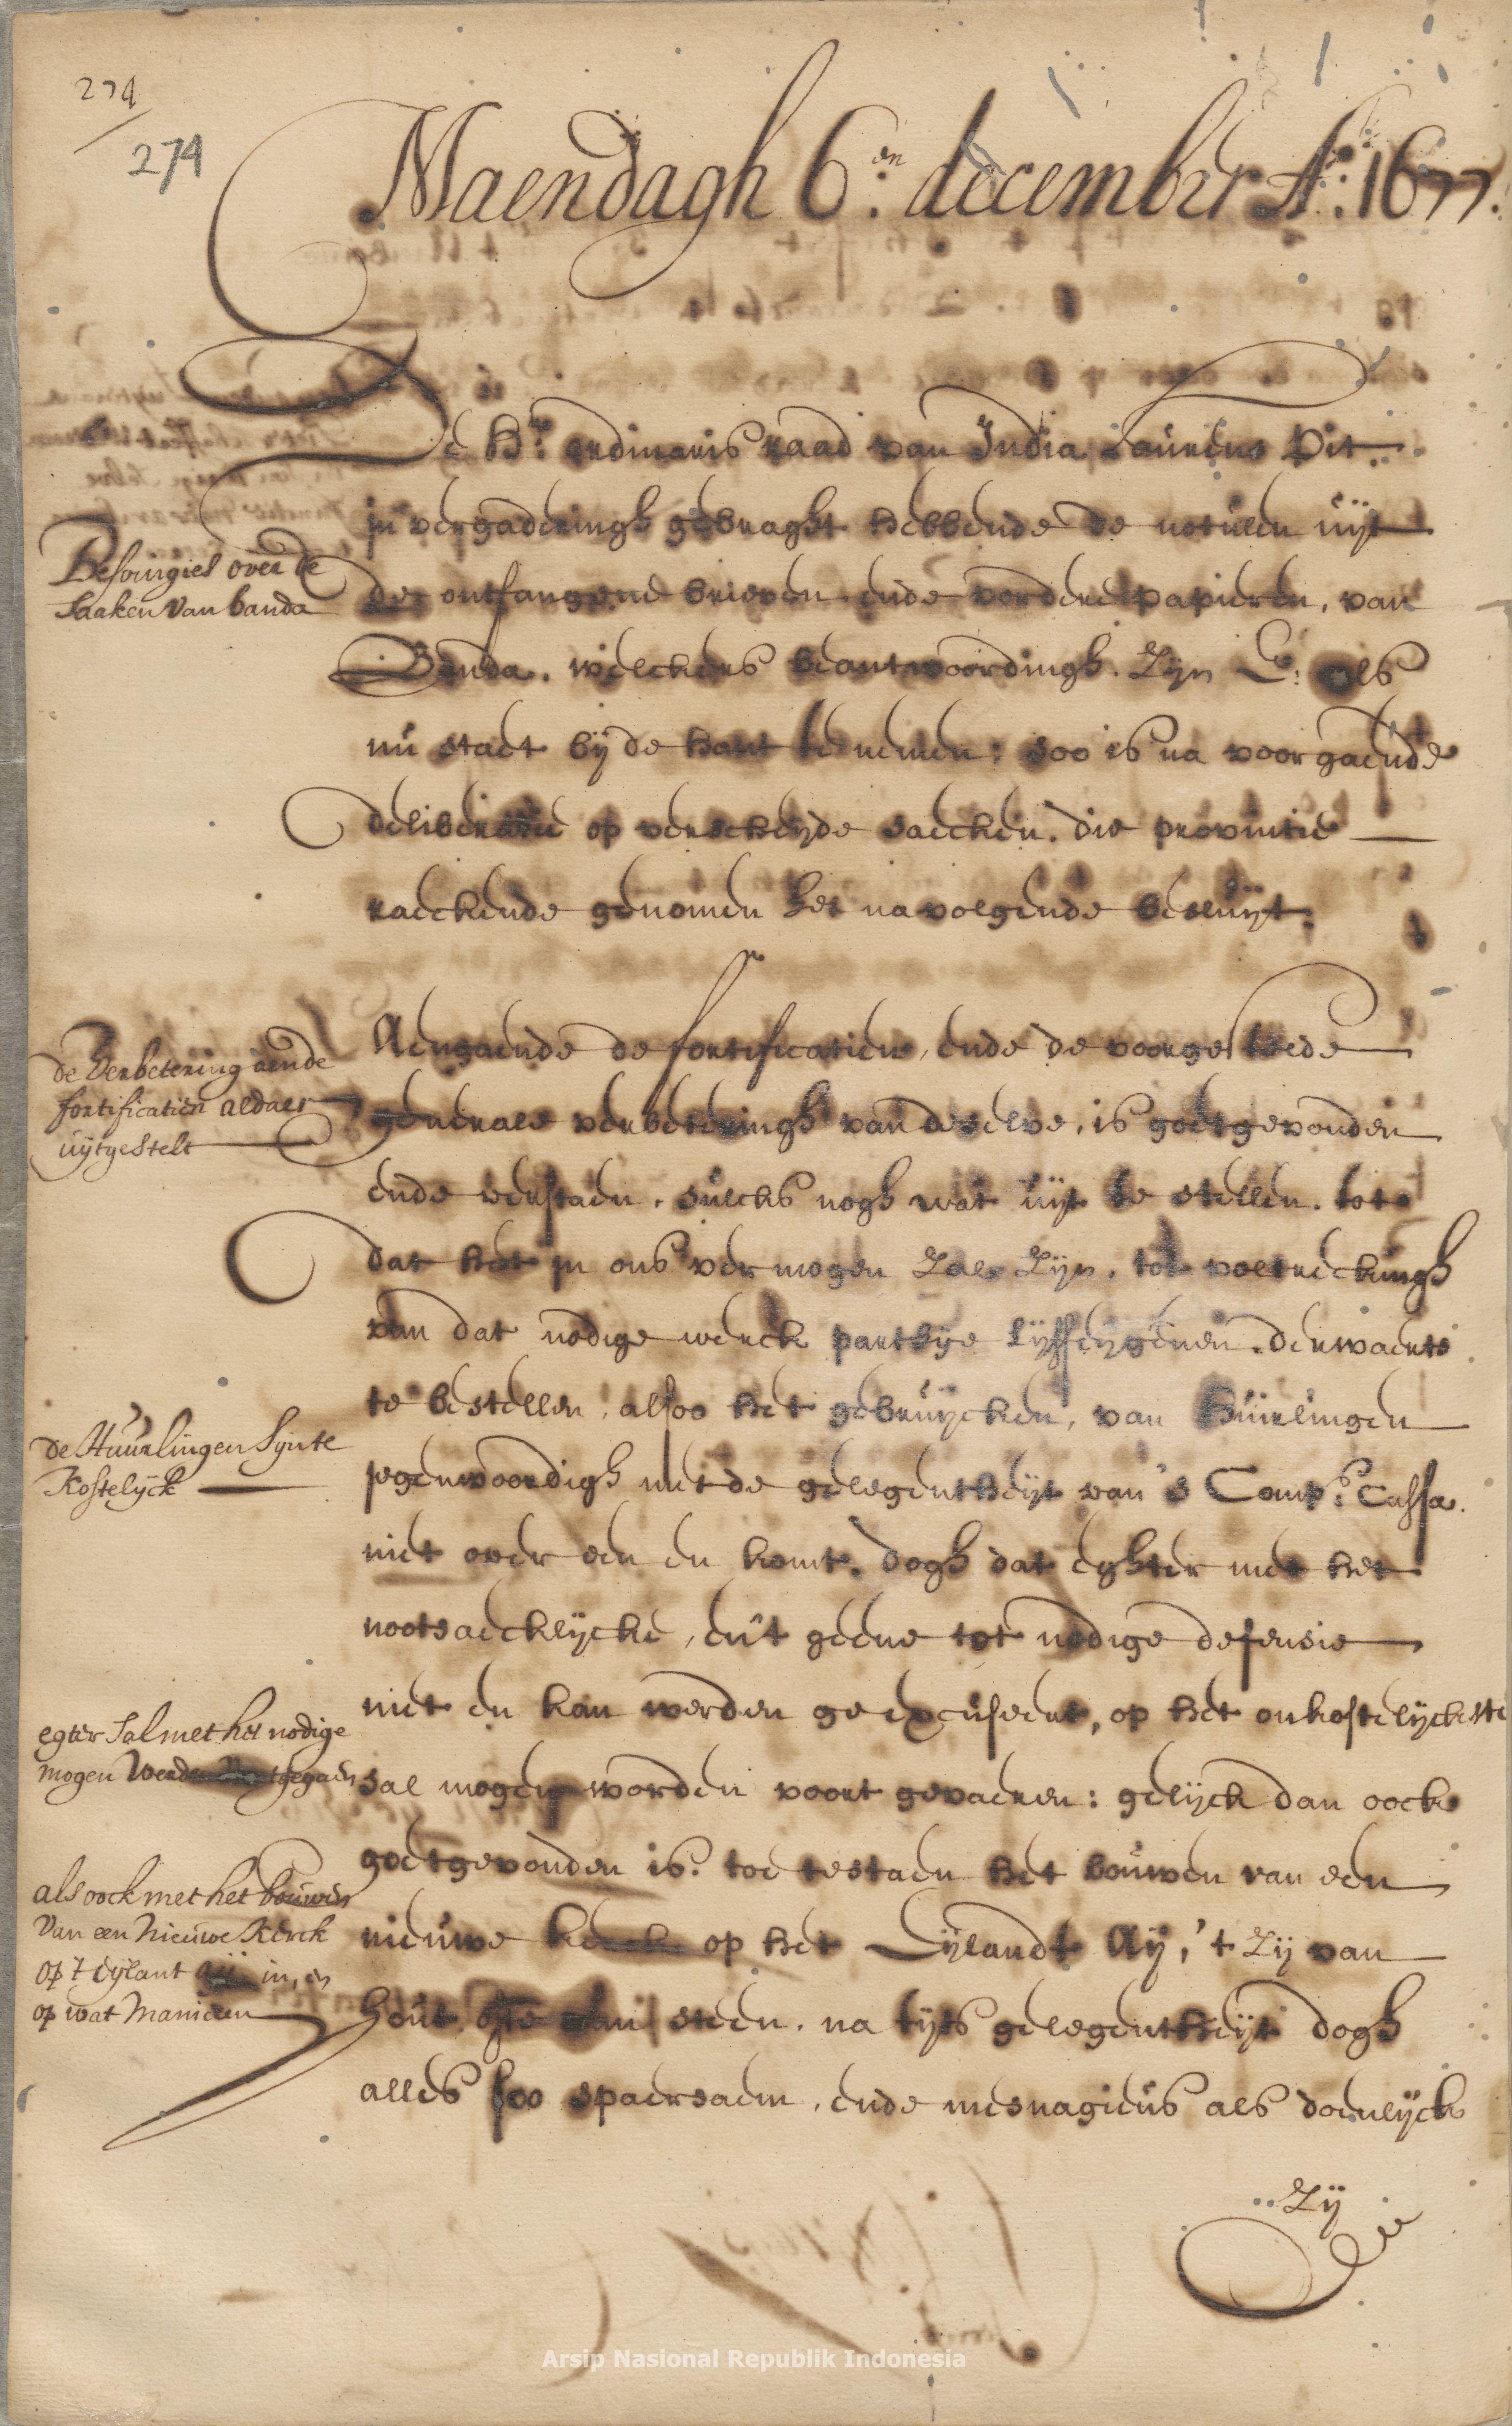 274
274
Maendagh 6:en december Ao: 1677.
De Hr. ordinaris raad van India Laurens Pit
in vergaderingh gebraght hebbende de notulen uijt
de ontfangene brieven ende vordere papieren, van
Banda. welckers beantwoordingh Zijn E: als
nu staet bij de hant te nemen; soo is na voorgaende
deliberatie op verscheijde saecken. die provintie
raeckende genomen het navolgende besluijt.
Besoingies over de
Saaken van banda
Aengaende de fortificatien, ende de voorgestelde
generale verbeteringh van deselve, is goetgevonden
ende verstaen, sulcks nogh wat uijt te stellen. tot
dat het in ons vermogen Zal Zijn, tot voltreckingh
van dat nodige werck partije lijffeijgenen derwaerts
te bestellen, alsoo het gebruijcken, van huirlingen
jegenwoordigh met de gelegentheijt van 's Comps: Cassa.
niet over een en komt. dogh dat eghter met het
nootsaecklijcke, en 't geene tot nodige defensie
niet en kan werden geexcuseert, op het onkostelijckste
sal mogen worden voort gevaeren: gelijck dan oock
goetgevonden is. toe te staen het bouwen van een
nieuwe kerck op het Eijlandt Aij, 't Zij van
hout ofte van steen. na tijts gelegentheijt dogh
alles soo spaersaem, ende mesnagieus als doenlijck
Zij
de Verbetering aende
fortificatien aldaer
uijtgestelt
de Huurlingen Sijn te
Kostelijck
egter Sal met het nodige
mogen Werden voortgegaen
als oock met het bouwen
Van een Nieuwe Kerck
op 't Eijlant aij in, en
op wat Manieren
Arsip Nasional Republik Indonesia